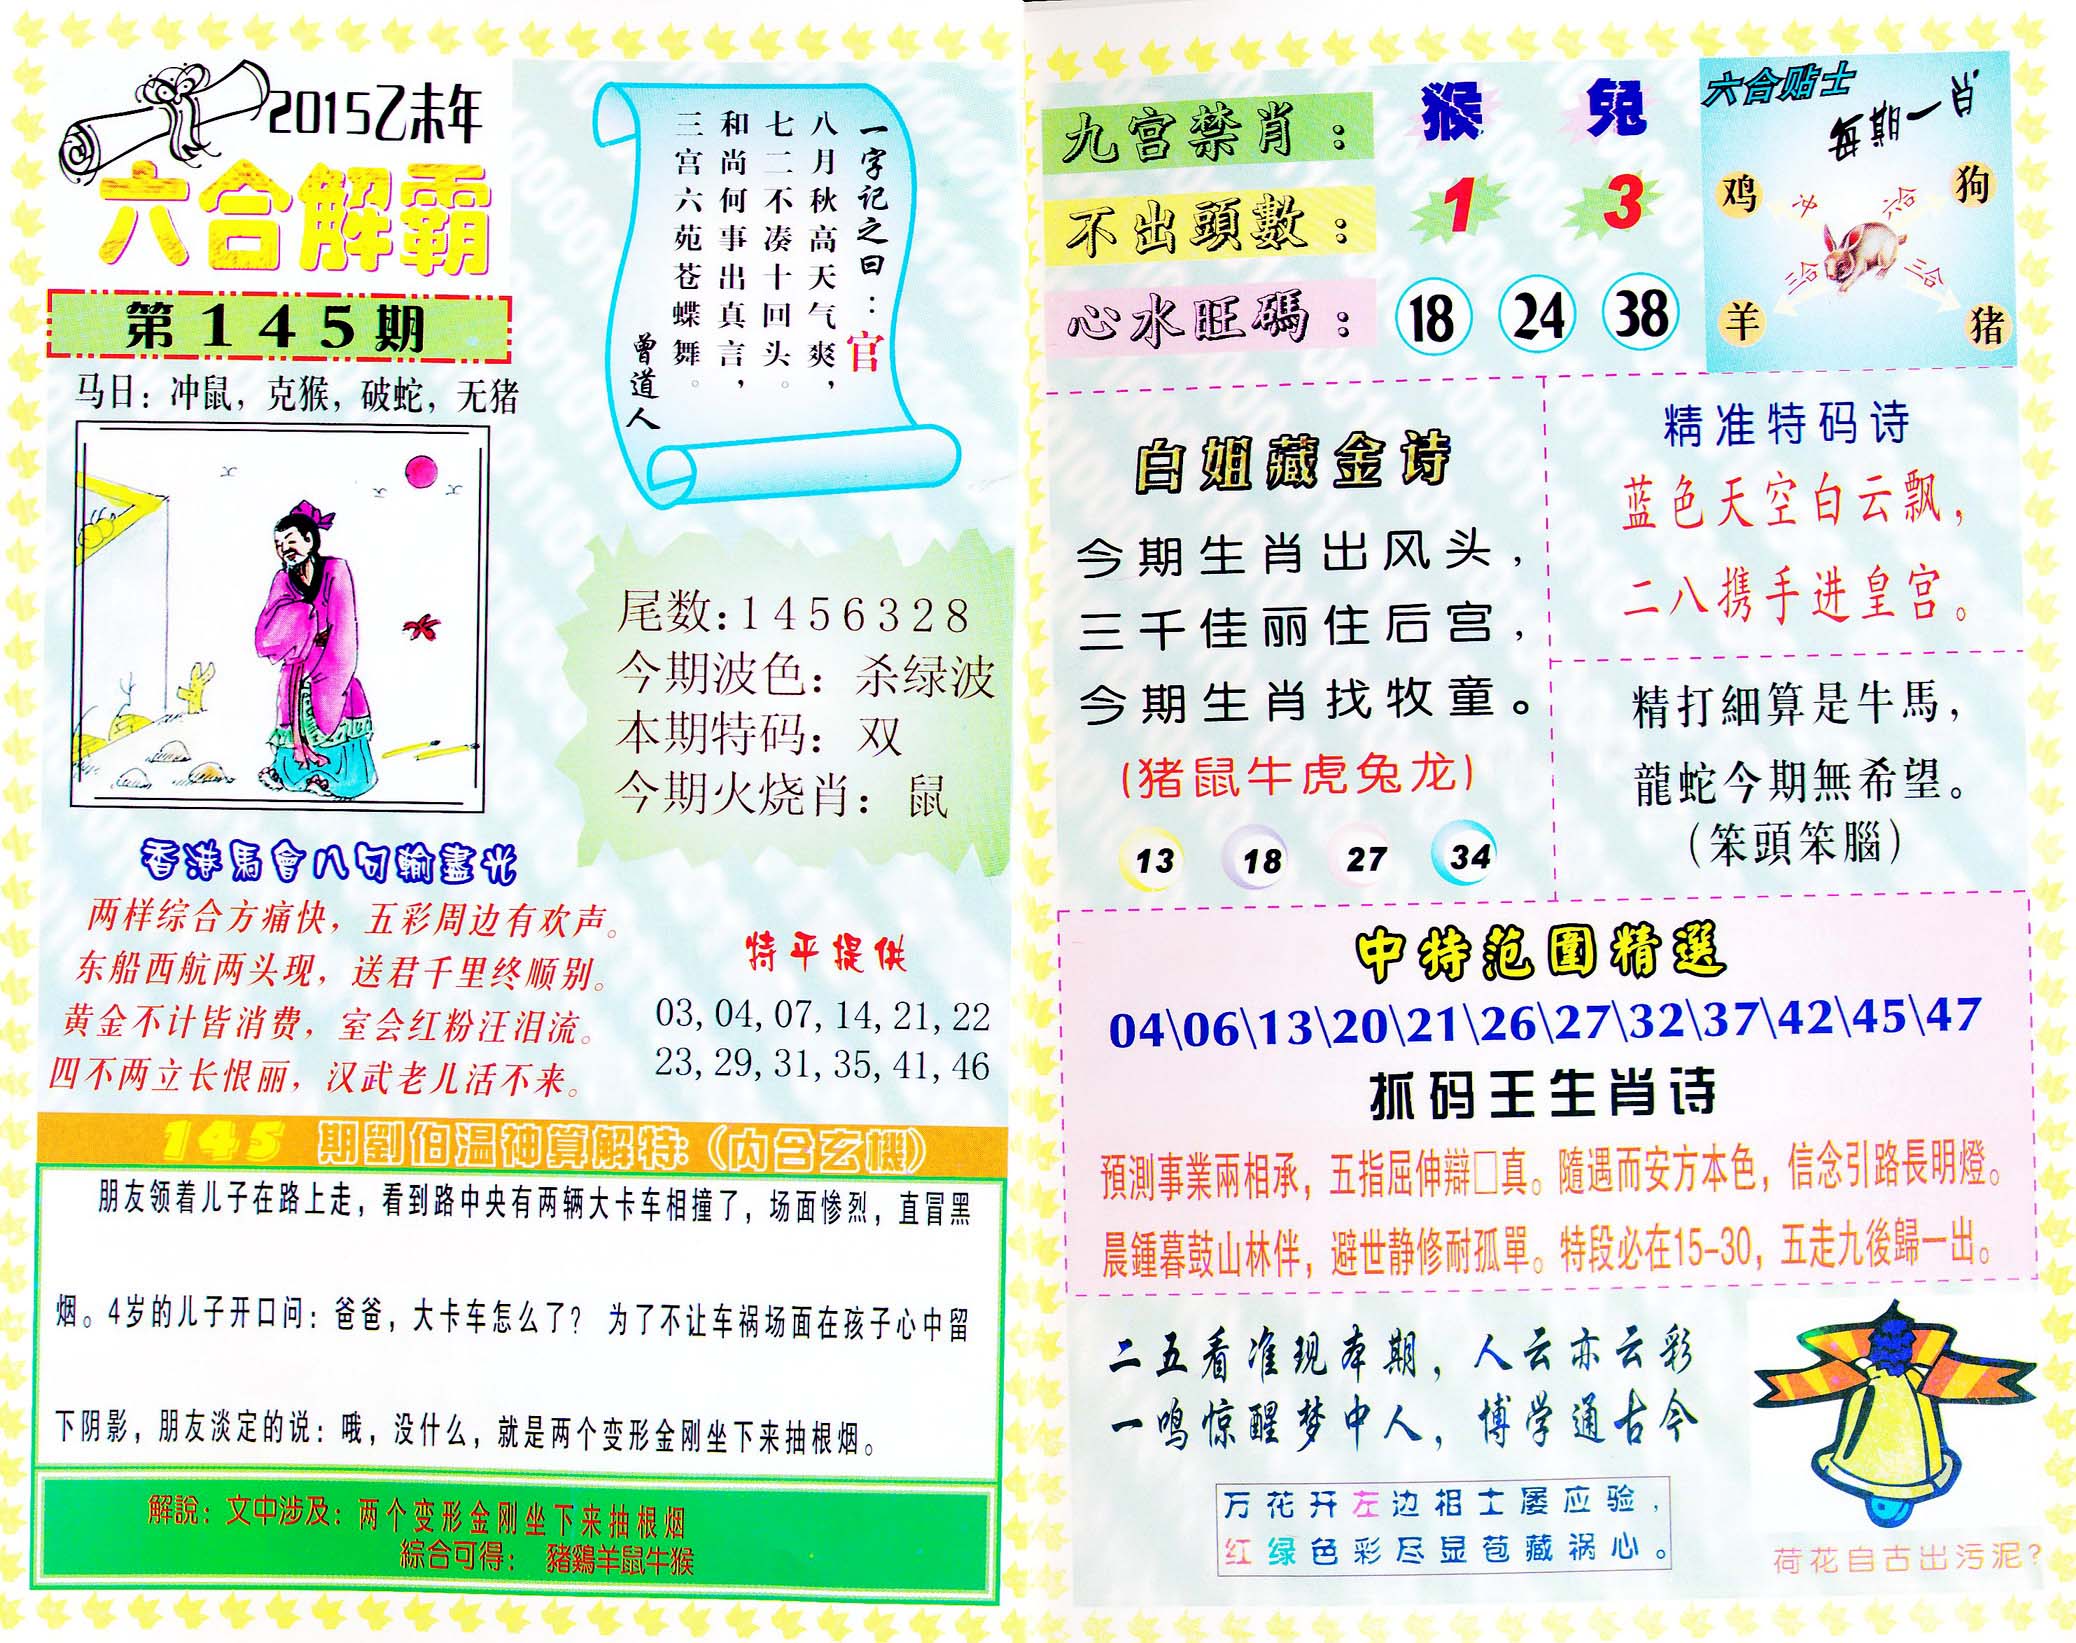 2015乙未年
六合解霸
第145期
马日：冲鼠，克猴，破蛇，无猪
一字记之曰：官
八月秋高天气爽，
七二不凑十回头。
和尚何事出真言，
三宫六苑苍蝶舞。
曾道人
尾数：1456328
今期波色：杀绿波
本期特码：双
今期火烧肖：鼠
香港馬會八句輸盡光
两样综合方痛快，五彩周边有欢声。
东船西航两头现，送君千里终顺别。
黄金不计皆消费，室会红粉汪泪流。
四不两立长恨丽，汉武老儿活不来。
特平提供
03,04,07,14,21,22
23,29,31,35,41,46
145 期劉伯温神算解特：（内含玄機）
朋友领着儿子在路上走，看到路中央有两辆大卡车相撞了，场面惨烈，直冒黑
烟。4岁的儿子开口问：爸爸，大卡车怎么了？ 为了不让车祸场面在孩子心中留
下阴影，朋友淡定的说：哦，没什么，就是两个变形金刚坐下来抽根烟。
解說：文中涉及：两个变形金刚坐下来抽根烟
綜合可得： 豬鷄羊鼠牛猴
九宫禁肖： 猴 兔
不出頭數： 1 3
心水旺碼： 18 24 38
六合贴士
每期一肖
鸡 冲 六合 狗
羊 三合 三合 猪
白姐藏金诗
今期生肖出风头，
三千佳丽住后宫，
今期生肖找牧童。
(猪鼠牛虎兔龙)
13 18 27 34
精准特码诗
蓝色天空白云飘，
二八携手进皇宫。
精打細算是牛馬，
龍蛇今期無希望。
（笨頭笨腦）
中特范圍精選
04\06\13\20\21\26\27\32\37\42\45\47
抓码王生肖诗
預測事業兩相承，五指屈伸辯□真。隨遇而安方本色，信念引路長明燈。
晨鍾暮鼓山林伴，避世静修耐孤單。特段必在15-30，五走九後歸一出。
二五看准现本期，人云亦云彩
一鸣惊醒梦中人，博学通古今
万花开左边相士屡应验，
红绿色彩尽显苞藏祸心。
荷花自古出污泥？